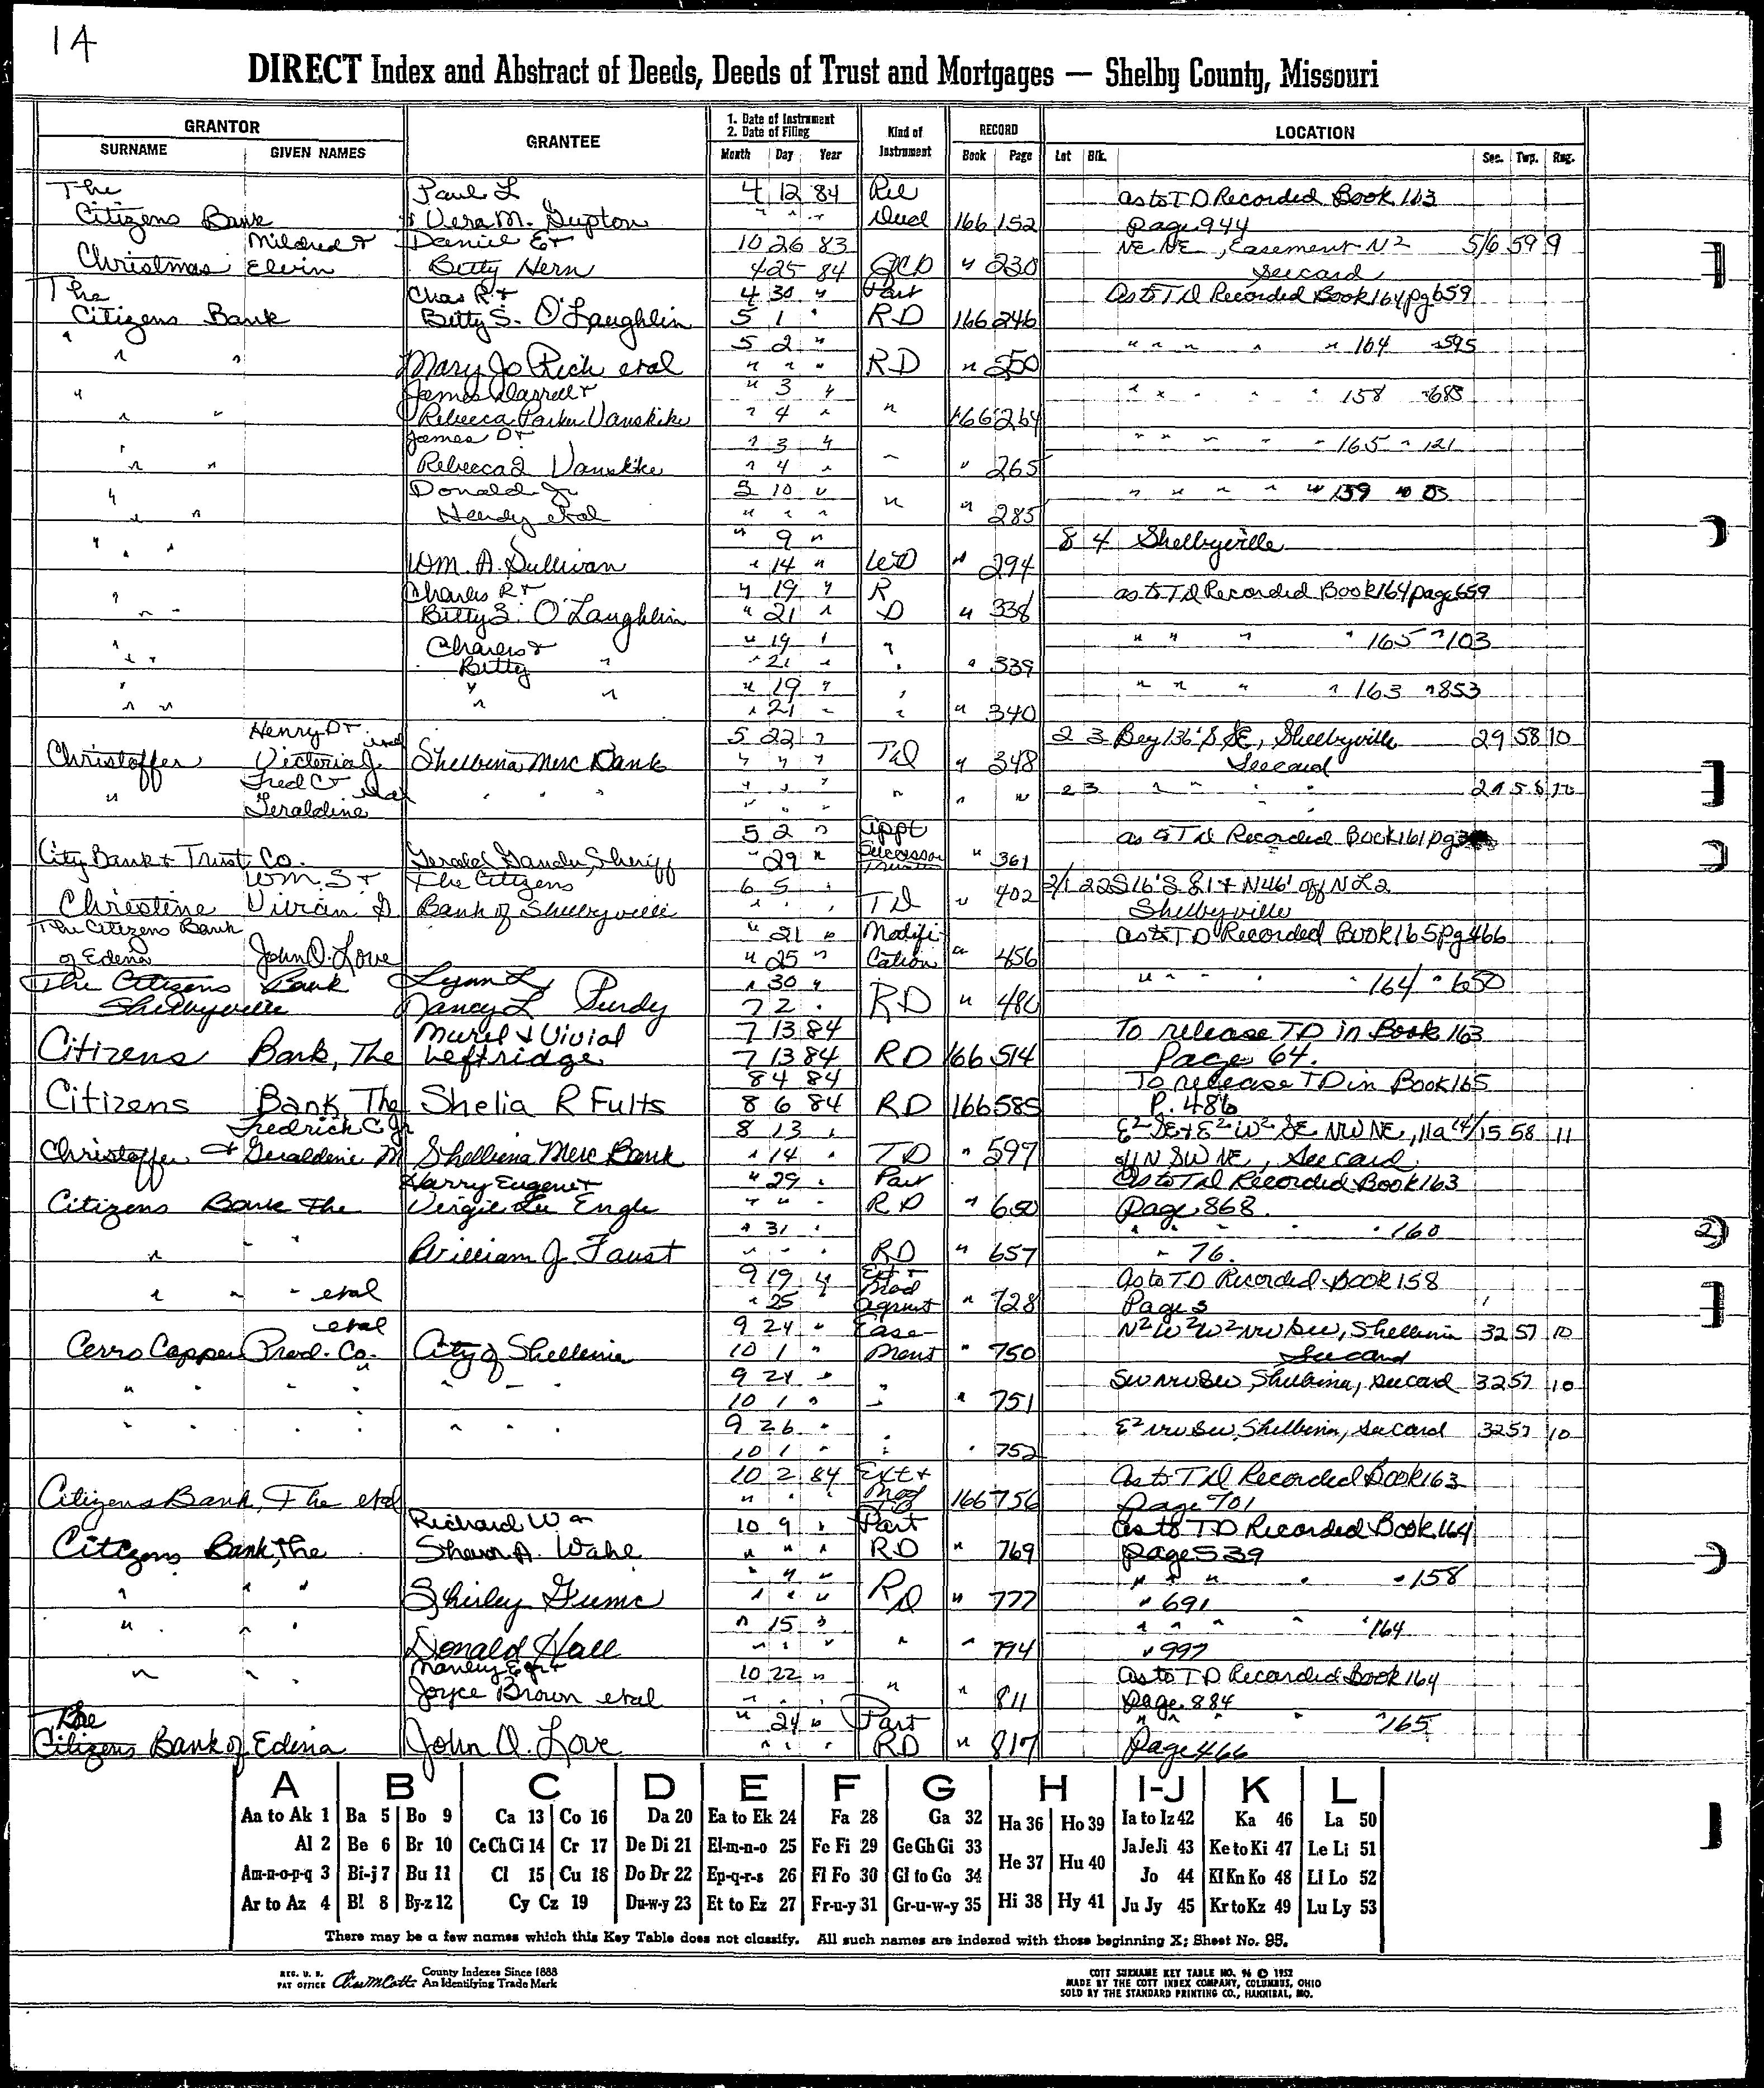 14
DIRECT Index and Abstract of Deeds, Deeds of Trust and Mortgages — Shelby County, Missouri
GRANTOR GRANTEE 1. Date of Instrument 2. Date of Filing Kind of Instrument RECORD LOCATION
SURNAME GIVEN NAMES Month Day Year Book Page Lot Blk. Sec. Twp. Rng.
The Paul L 4 12 84 Rel as to TD Recorded Book 163
Citizens Bank & Vera M. Gupton " " " Deed 166 152 page 944
Mildred & Daniel E & 10 26 83 NE NE, Easement N2 5/6 59 9
Christmas Elvin Betty Hern 4 25 84 QCD " 230 See card
The Chas R. & 4 30 " Part As to TD Recorded Book 164 pg 659
Citizens Bank Betty S. O'Laughlin 5 1 " RD 166 246
" 5 2 " " " " " " 164 " 595
" " Mary Jo Rich etal " " " RD " 250
" James Darrell & " 3 " " " " " " 158 " 683
" " Rebecca Parker Vanskike " 4 " " 166 264
" James D & " 3 " " " " " " 165 " 121
" " Rebecca J Vanskike " 4 " " " 265
" Donald Jr 5 10 " " " " " " " 159 " 03
" " Hendy etal " " " " 285
" " 9 " 8 4 Shelbyville
" " Wm. A. Sullivan " 14 " " 294
" Charles R & " 19 " R as to TD Recorded Book 164 page 659
" " Betty S. O'Laughlin " 21 " D " 338
" Charles & " 19 " " " " " " 165 " 103
" " Betty " " 21 " " " 339
" " " " 19 " " " " " " 163 " 853
" " " " 21 " " " 340
Henry D & etal 5 22 " 2 3 Beg 136' S SE, Shelbyville 29 58 10
Christoffer Victoria J. Shelbina Merc Bank " " " TD " 348 See card
Fred C & etal " " " 2 3 " " " " 29 58 10
" Geraldine " " " " " " " " "
5 2 " Appt as to TD Recorded Book 161 pg
City Bank & Trust Co. Gerald Gander, Sheriff " 29 " Successor Trustee " 361
Wm. S & The Citizens 6 5 " 402 2/1 22 S 16' S & 1 & N 46' off N L 2
Christine Vivian D Bank of Shelbyville " " " TD " Shelbyville
The Citizens Bank " 21 " Modifi as to TD Recorded Book 165 pg 466
of Edena John O. Love " 25 " cation " 456
The Citizens Bank Lynn L, " 30 " " " " " " 164 " 650
Shelbyville Nancy L Purdy 7 2 " RD " 480
Murel & Vivial 7 13 84 To release TD in Book 163
Citizens Bank, The Leftridge 7 13 84 RD 166 514 Page 64.
8 4 84 To release TD in Book 165
Citizens Bank, The Shelia R Fults 8 6 84 RD 166 585 P. 486
Fredrick C Jr 8 13 " E2 SE & E2 W2 SE NW NE, 11a 14/15 58 11
Christoffer & Geraldine M Shelbina Merc Bank " 14 " TD " 597 N SW NE, See card.
Harry Eugene & " 29 " Part As to TD Recorded Book 163
Citizens Bank The Virgie Lee Engle " " " RD " 650 Page 868.
" 31 " " " " " 160
" " " William J. Faust " " " RD " 657 " 76.
9 19 " Ext & As to TD Recorded Book 158
" " " etal " 25 " Mod Agrmt " 728 Page 3
etal 9 24 " Ease- N2 W2 W2 NW SW, Shelbina 32 57 10
Cerro Copper Prod. Co. City of Shelbina 10 1 " ment " 750 See card
" " " " " " " 9 24 " " SW NW SW, Shelbina, see card 32 57 10
10 1 " " " 751
" " " " " " " 9 26 " " E2 NW SW, Shelbina, see card 32 57 10
10 1 " " " 752
10 2 84 Ext & As to TD Recorded Book 163
Citizens Bank, The etal " " " Mod TD 166 756 page 701
Richard W & 10 9 " Part as to TD Recorded Book 164
Citizens Bank, The Sharon A. Wahl " " " RD " 769 page 539
" 9 " " " " " " 158
" " " Shirley " " " RD " 777 " 691
" " " " 15 " " " " " " 164
Donald Hall " " " " " 794 " 997
" " " Manley E Jr & 10 22 " As to TD Recorded Book 164
Joyce Brown etal " " " " " 811 page 884
The " 24 " Part " " " " 165
Citizens Bank of Edina John O. Love " " " RD " 817 Page 466
A B C D E F G H I-J K L
Aa to Ak 1 Ba 5 Bo 9 Ca 13 Co 16 Da 20 Ea to Ek 24 Fa 28 Ga 32 Ha 36 Ho 39 Ia to Iz 42 Ka 46 La 50
Al 2 Be 6 Br 10 Ce Ch Ci 14 Cr 17 De Di 21 El-m-n-o 25 Fe Fi 29 Ge Gh Gi 33 He 37 Hu 40 Ja Je Ji 43 Ke to Ki 47 Le Li 51
Am-n-o-p-q 3 Bi-j 7 Bu 11 Cl 15 Cu 18 Do Dr 22 Ep-q-r-s 26 Fl Fo 30 Gl to Go 34 Jo 44 Kl Kn Ko 48 Ll Lo 52
Ar to Az 4 Bl 8 By-z 12 Cy Cz 19 Du-w-y 23 Et to Ez 27 Fr-u-y 31 Gr-u-w-y 35 Hi 38 Hy 41 Ju Jy 45 Kr to Kz 49 Lu Ly 53
There may be a few names which this Key Table does not classify. All such names are indexed with those beginning X; Sheet No. 95.
REG. U. S. PAT OFFICE County Indexes Since 1888 An Identifying Trade Mark
COTT SURNAME KEY TABLE NO. 96 © 1952
MADE BY THE COTT INDEX COMPANY, COLUMBUS, OHIO
SOLD BY THE STANDARD PRINTING CO., HANNIBAL, MO.